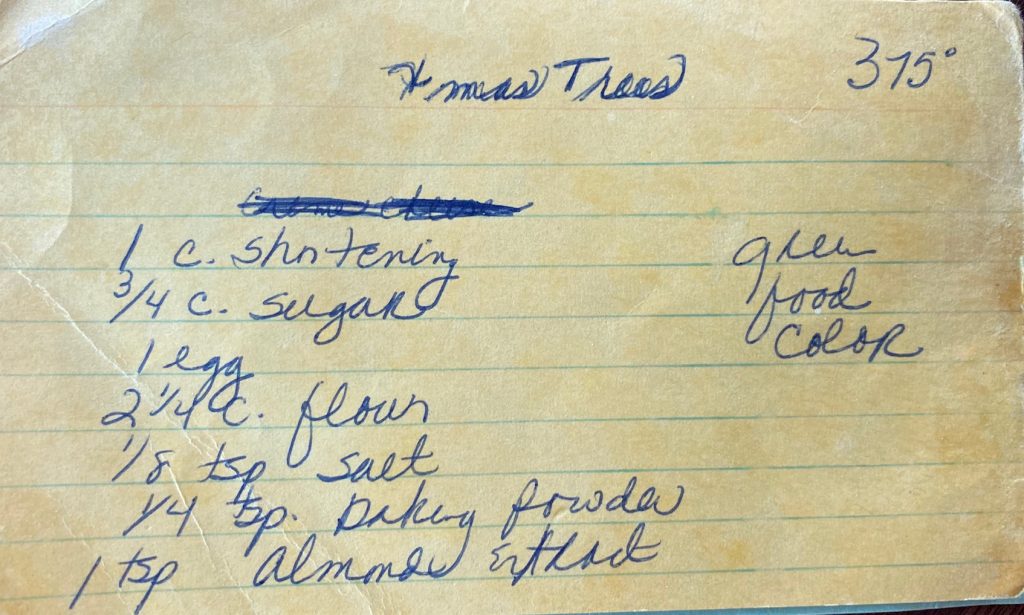 Xmas Trees 375°
Creme Cheese
1 c. shortening
3/4 c. sugar
1 egg
2 1/4 c. flour
1/8 tsp salt
1/4 tsp. baking powder
1 tsp almond extract
green
food
color